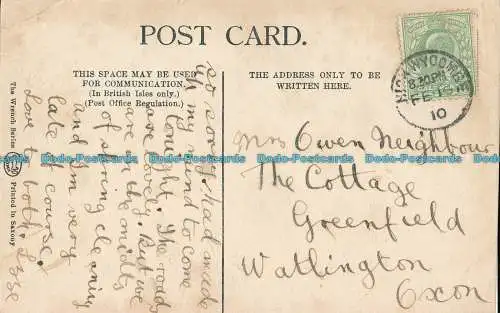 POST CARD.
THIS SPACE MAY BE USED
FOR COMMUNICATION.
(In British Isles only.)
(Post Office Regulation.)
THE ADDRESS ONLY TO BE
WRITTEN HERE.
HIGH WYCOMBE
8.30 PM
FE
10
The Wrench Series
Printed in Saxony
so sorry, had made
up my mind to come
tonight. The roads
are lovely. But we
are in the midst
of spring cleaning
and I'm very
late of course.
Love to both.
Mrs Owen Neighbour
The Cottage
Greenfield
Watlington
Oxon
Ibluedotpostcards